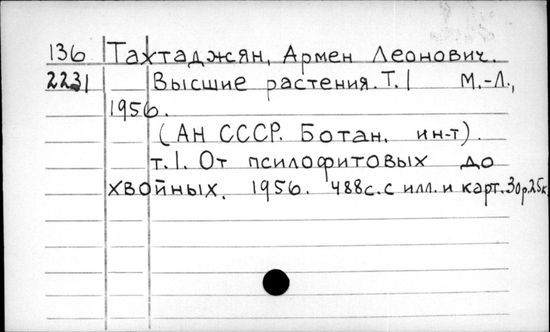 136 Тахтаджян, Армен Леонович.
2231 Высшие растения. Т. I М.-Л.,
1956.
(АН СССР. Ботан. ин-т).
т. I. От псилофитовых до
хвойных. 1956. 488с. с илл. и карт. 30р.25к.